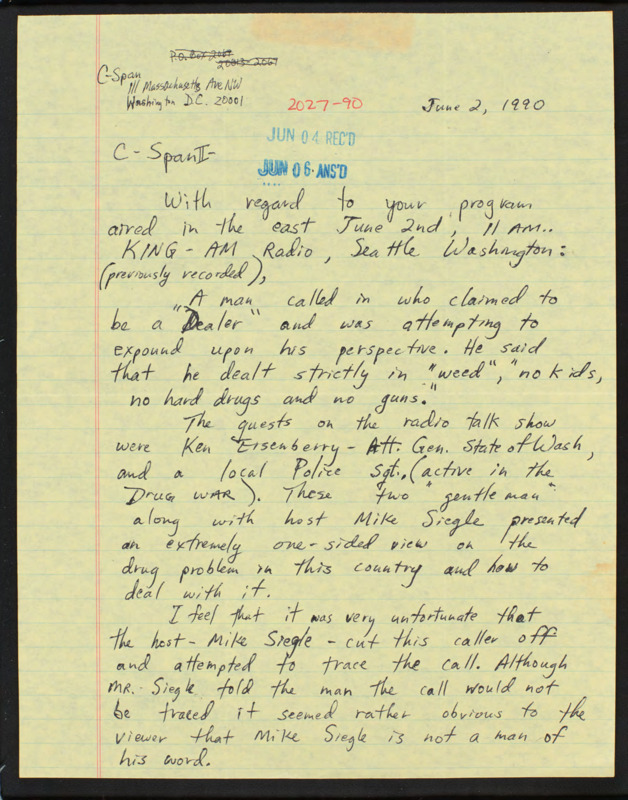 P.O. Box 2069
20013-2069
C-Span
111 Massachusetts Ave NW
Washington D.C. 20001
2027-90
June 2, 1990
JUN 04 REC'D
C-Span II-
JUN 06 ANS'D
With regard to your program
aired in the east June 2nd, 11 AM..
KING-AM Radio, Seattle Washington:
(previously recorded),
A man called in who claimed to
be a "Dealer" and was attempting to
expound upon his perspective. He said
that he dealt strictly in "weed", "no kids,
no hard drugs and no guns."
The guests on the radio talk show
were Ken Eisenberry - Att. Gen. State of Wash,
and a local Police Sgt., (active in the
Drug WAR). These two "gentleman"
along with host Mike Siegle presented
an extremely one-sided view on the
drug problem in this country and how to
deal with it.
I feel that it was very unfortunate that
the host - Mike Siegle - cut this caller off
and attempted to trace the call. Although
MR. Siegle told the man the call would not
be traced it seemed rather obvious to the
viewer that Mike Siegle is not a man of
his word.